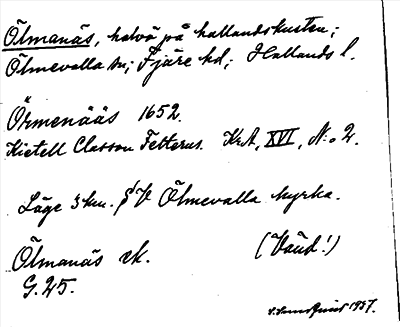 Ölmanäs, halvö på hallandskusten;
Ölmevalla sn; Fjäre hd; Hallands l.
Örmenääs 1652.
Kietell Classon Felterus. KrA, XVI, N:o 2.
Läge 3 km. SV Ölmevalla kyrka.
Ölmanäs ek. (Vâud!)
G.25.
1937.